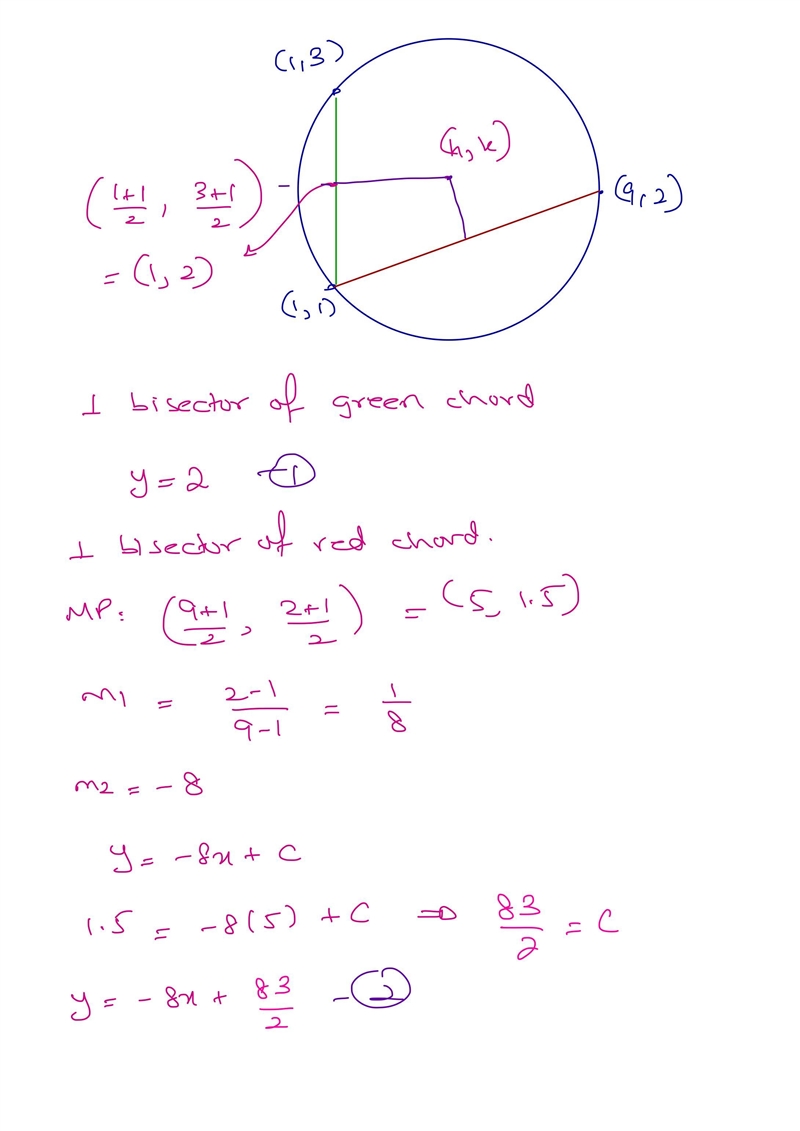 (1,3)
(h,k)
(1+1/2, 3+1/2) -
(9,2)
= (1,2)
(1,1)
⊥ bisector of green chord
y = 2 - ①
⊥ bisector of red chord.
MP: (9+1/2, 2+1/2) = (5, 1.5)
m1 = 2-1/9-1 = 1/8
m2 = -8
y = -8x + C
1.5 = -8(5) + C ⇒ 83/2 = C
y = -8x + 83/2 - ②